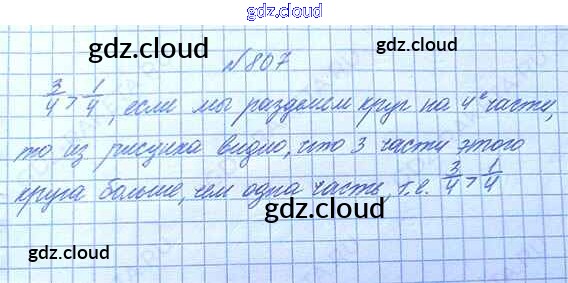 gdz.cloud
gdz.cloud gdz.cloud
N 807
3/4 > 1/4, если мы разделим круг на 4е части,
то из рисунка видно, что 3 части этого
круга больше, чем одна часть, т.е. 3/4 > 1/4
gdz.cloud
gdz.cloud